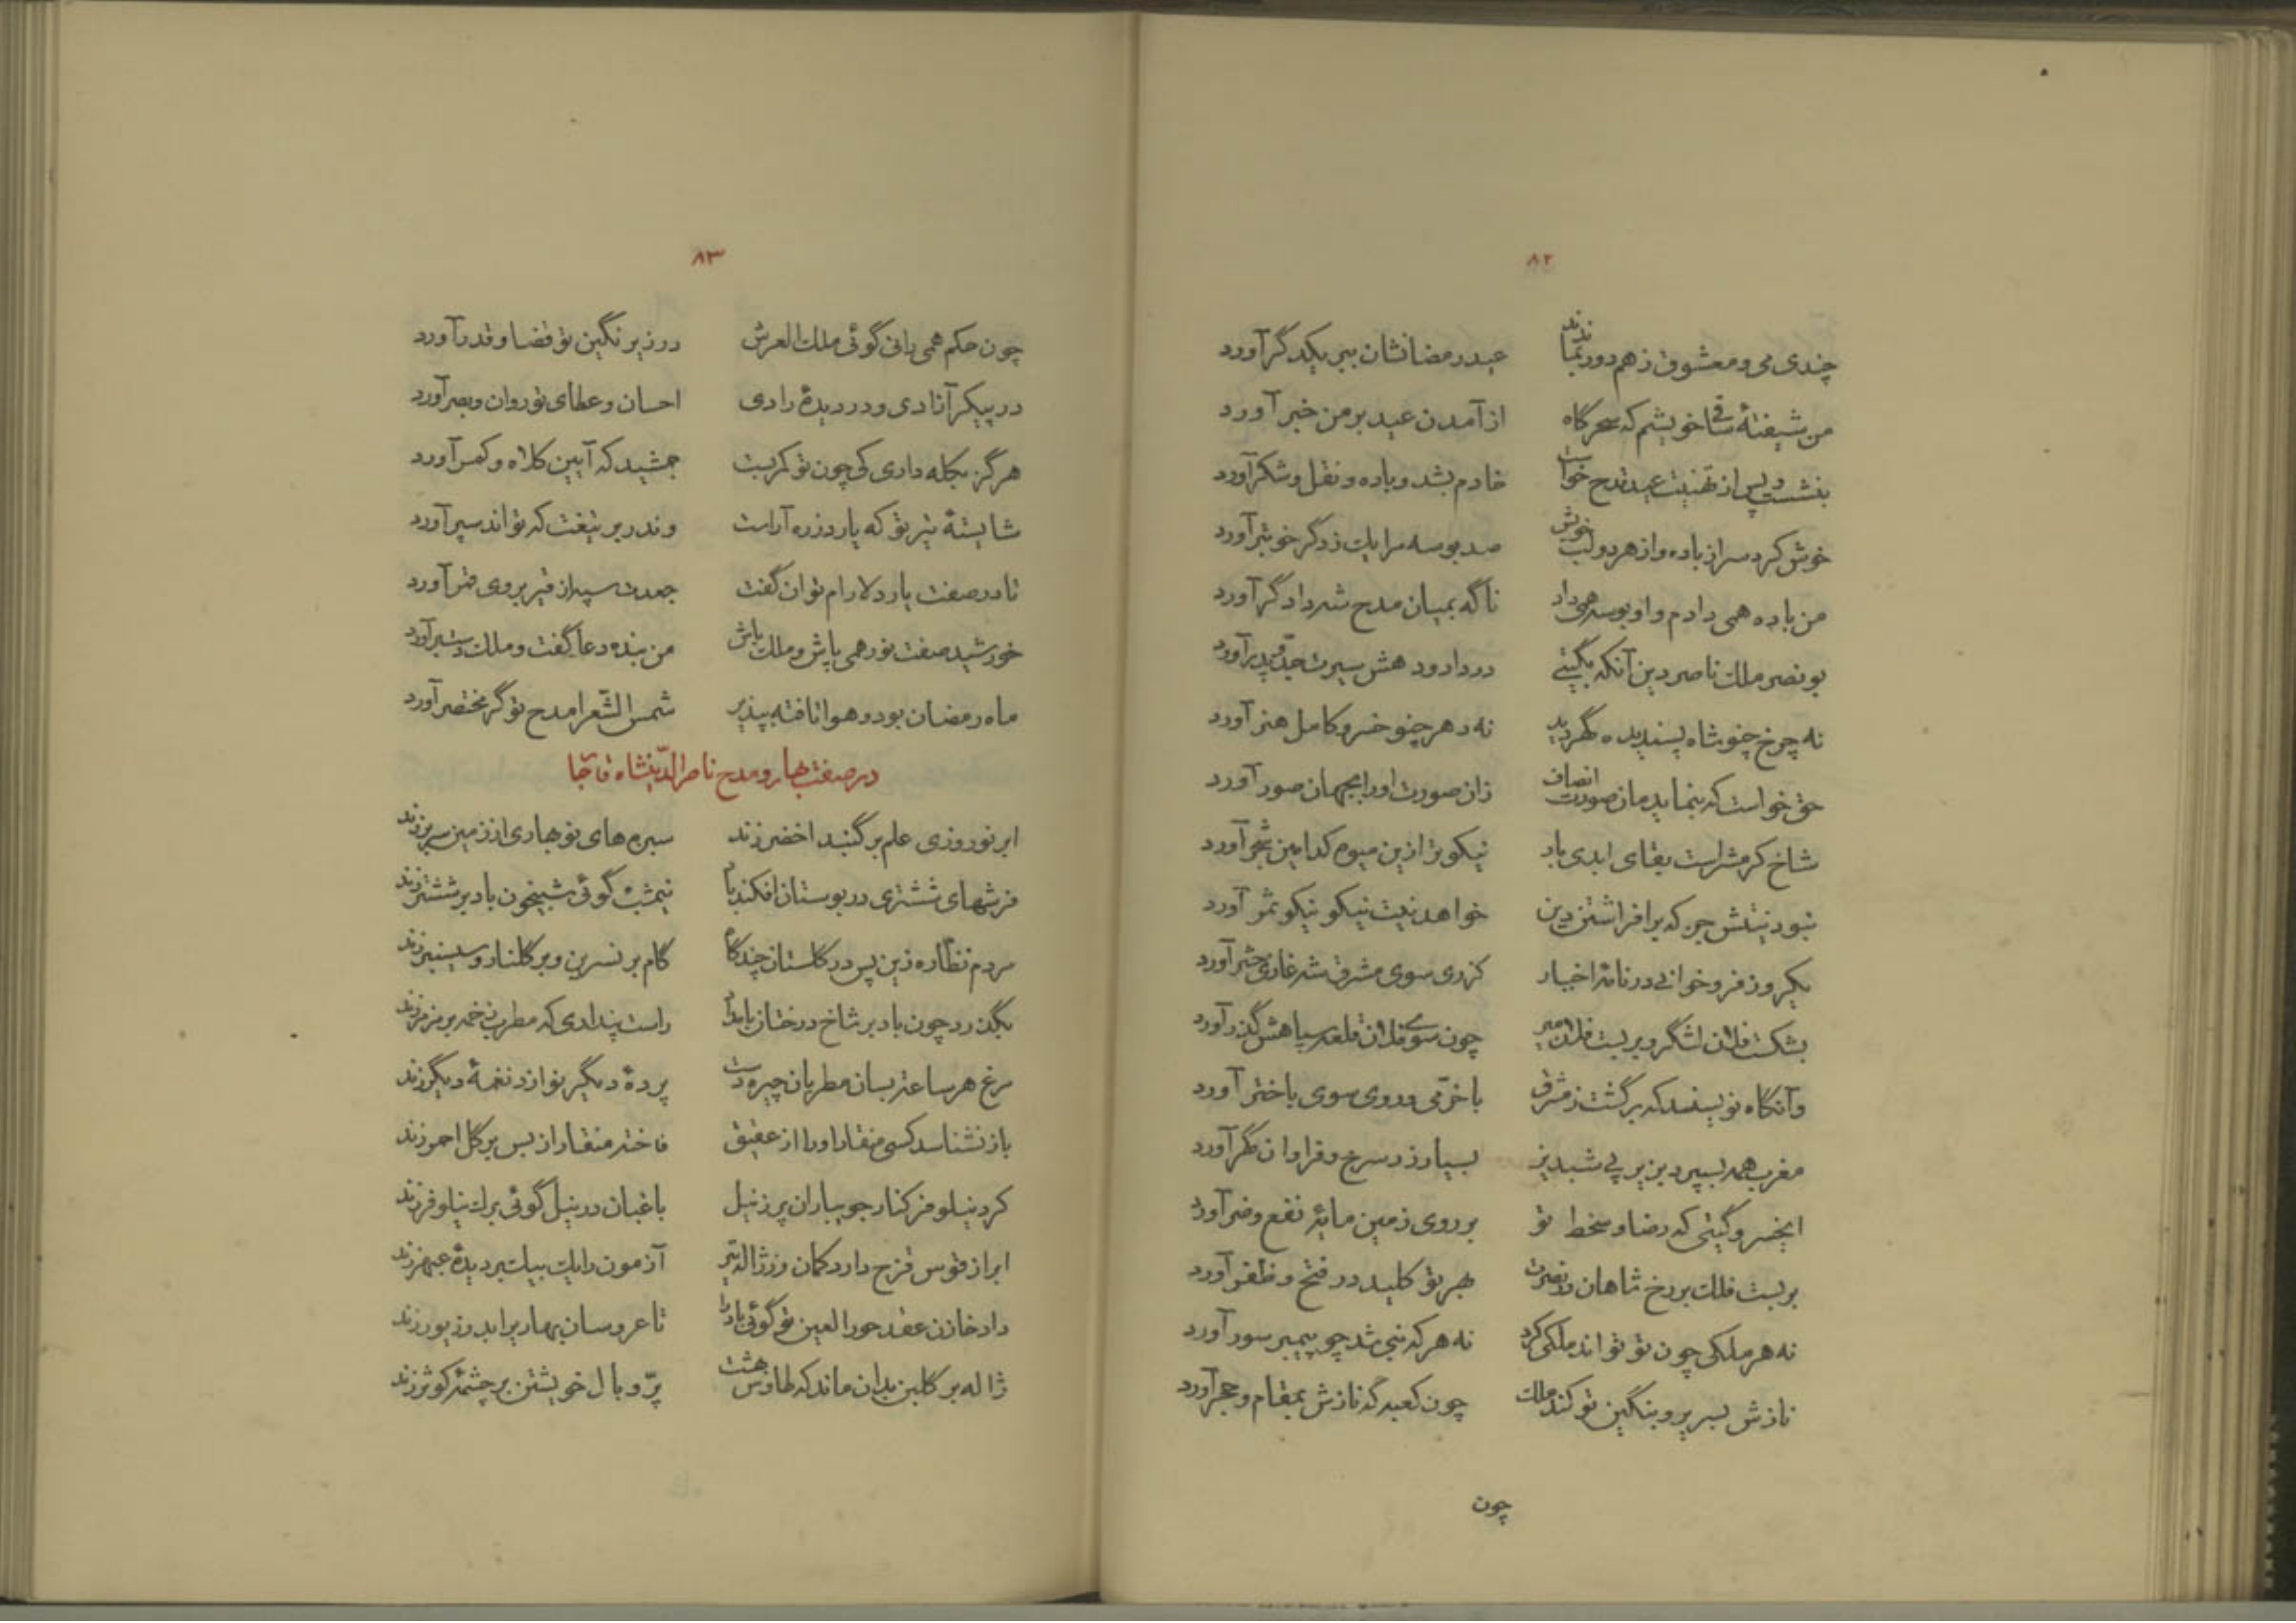 ۸۲
چندی می و معشوق ز هم دور بماندند عید رمضانشان ببر یکدگر آورد
من شیفتهٔ ساقی خویشم که سحرگاه از آمدن عید بر من خبر آورد
بنشست و پس از تهنیت عید قدح خواست خادم بشد و باده و نقل و شکر آورد
خوش کرد سر از باده و از هر دو لب خویش صد بوسه مرا یک ز دگر خوبتر آورد
من باده همی دادم و او بوسه همی داد ناگه بمیان مدح شه دادگر آورد
بونصر ملک ناصر دین آنکه بگیتی در داد و دهش سیرت جد و پدر آورد
نه چرخ چنو شاه پسندیده گهر دید نه دهر چنو خسرو کامل هنر آورد
حق خواست که بنماید مان صورت انصاف زان صورت او را بجهان صور آورد
شاخ کرمش راست بقای ابدی بار نیکوتر ازین میوه کدامین شجر آورد
نبود نیتش جز که برافراشتن دین خواهد نیت نیکو نیکو ثمر آورد
یکروز فرو خوانی در نامهٔ اخبار کز ری سوی مشرق شه غازی حشر آورد
بشکست فلان لشگر و بربست فلان میر چون سوی فلان قلعه سپاهش گذر آورد
وآنگاه نویسند که برگشت ز مشرق با خرمی و روی سوی باختر آورد
مغرب همه بسپرد بزیر پی شبدیز بسیار زر سرخ و فراوان گهر آورد
ایخسرو گیتی که رضا و سخط تو بر روی زمین مایهٔ نفع و ضر آورد
بربست فلک بر رخ شاهان در نصرت بهر تو کلید در فتح و ظفر آورد
نه هر ملکی چون تو تواند ملکی کرد نه هر که نبی شد چو پیمبر سور آورد
نازش بسریر و بنگین تو کند ملک چون کعبه که نازش بمقام و حجر آورد
چون
۸۳
چون حکم همی رانی گوئی ملک العرش در زیر نگین تو قضا و قدر آورد
در پیکر آزادی و در دیدهٔ رادی احسان و عطای تو روان و بصر آورد
هرگز بکله داری کی چون تو کمر بست جمشید که آیین کلاه و کمر آورد
شایستهٔ تیر تو که یارد زره آراست وندر بر تیغت که تواند سپر آورد
تا در صفت یار دلارام توان گفت جعدت سپه از قیر بروی قمر آورد
خورشید صفت نور همی پاش و ملک باش من بنده دعا گفت و ملک دستبر آورد
ماه رمضان بود و هوا تافته بپذیر شمس الشعرا مدح تو گر مختصر آورد
در صفت بهار و مدح ناصرالدینشاه قاجار
ابر نوروزی علم بر گنبد اخضر زند سبزه های نوبهاری از زمین سر بر زند
فرشهای ششتری در بوستان افکند باد نیمشب گوئی شبیخون باد بر ششتر زند
مردم نظاره زین پس در گلستان چند گام گام بر نسرین و بر گلنار و سیسنبر زند
بگذرد چون باد بر شاخ درختان بامداد راست پنداری که مطرب زخمه بر مزمر زند
مرغ هر ساعت بسان مطربان چیره دست پردهٔ دیگر نوازد نغمهٔ دیگر زند
بازنشناسد کسی منقار او را از عقیق فاخته منقار از بس بر گل احمر زند
کرد نیلوفر کنار جویباران پر ز نیل باغبان در نیل گوئی برگ نیلوفر زند
ابر از قوس قزح دارد کمان وز ژاله تیر آزمون را یک بیک بر دیدهٔ عبهر زند
داد خازن عقد حورالعین تو گوئی باد را تا عروسان بهار را بدو زیور زند
ژاله بر گلبن بدان ماند که طاوس بهشت پر و بال خویشتن بر چشمهٔ کوثر زند